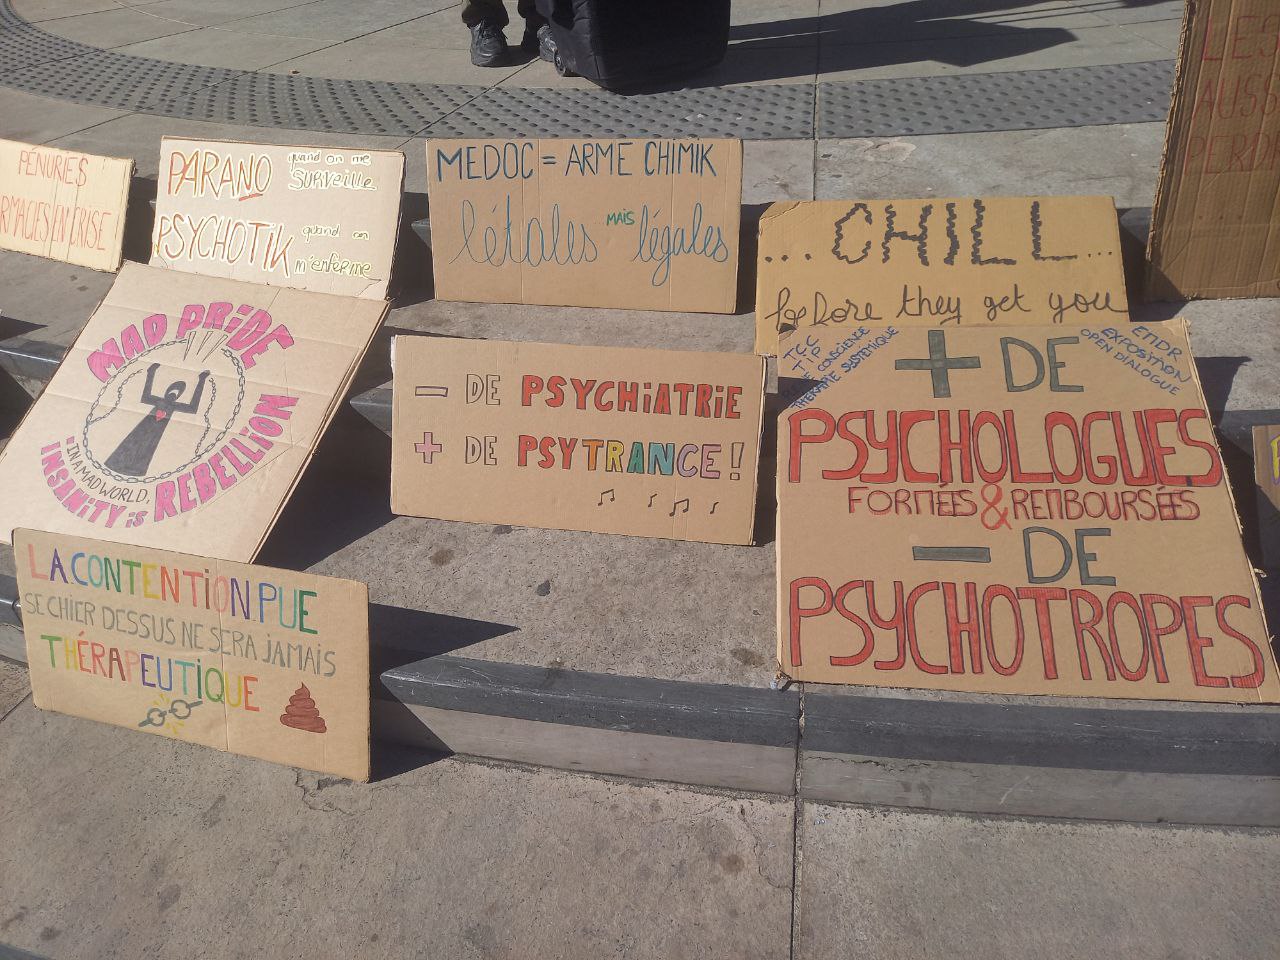 PÉNURIES
RMACIES EN CRISE
PARANO quand on me
SURVEILLE
PSYCHOTIK quand on
m'enferme
MEDOC = ARME CHIMIK
létales MAIS légales
...CHILL...
before they get you
LES
AUSS
PERD
MAD PRIDE
IN A MAD WORLD,
INSANITY is REBELLION
- DE PSYCHIATRIE
+ DE PSYTRANCE !
TCC
TIP
CONSCIENCE
THÉRAPIE SYSTÉMIQUE
EMDR
EXPOSITION
OPEN DIALOGUE
+ DE
PSYCHOLOGUES
FORMÉES & REMBOURSÉES
- DE
PSYCHOTROPES
LA CONTENTION PUE
SE CHIER DESSUS NE SERA JAMAIS
THÉRAPEUTIQUE